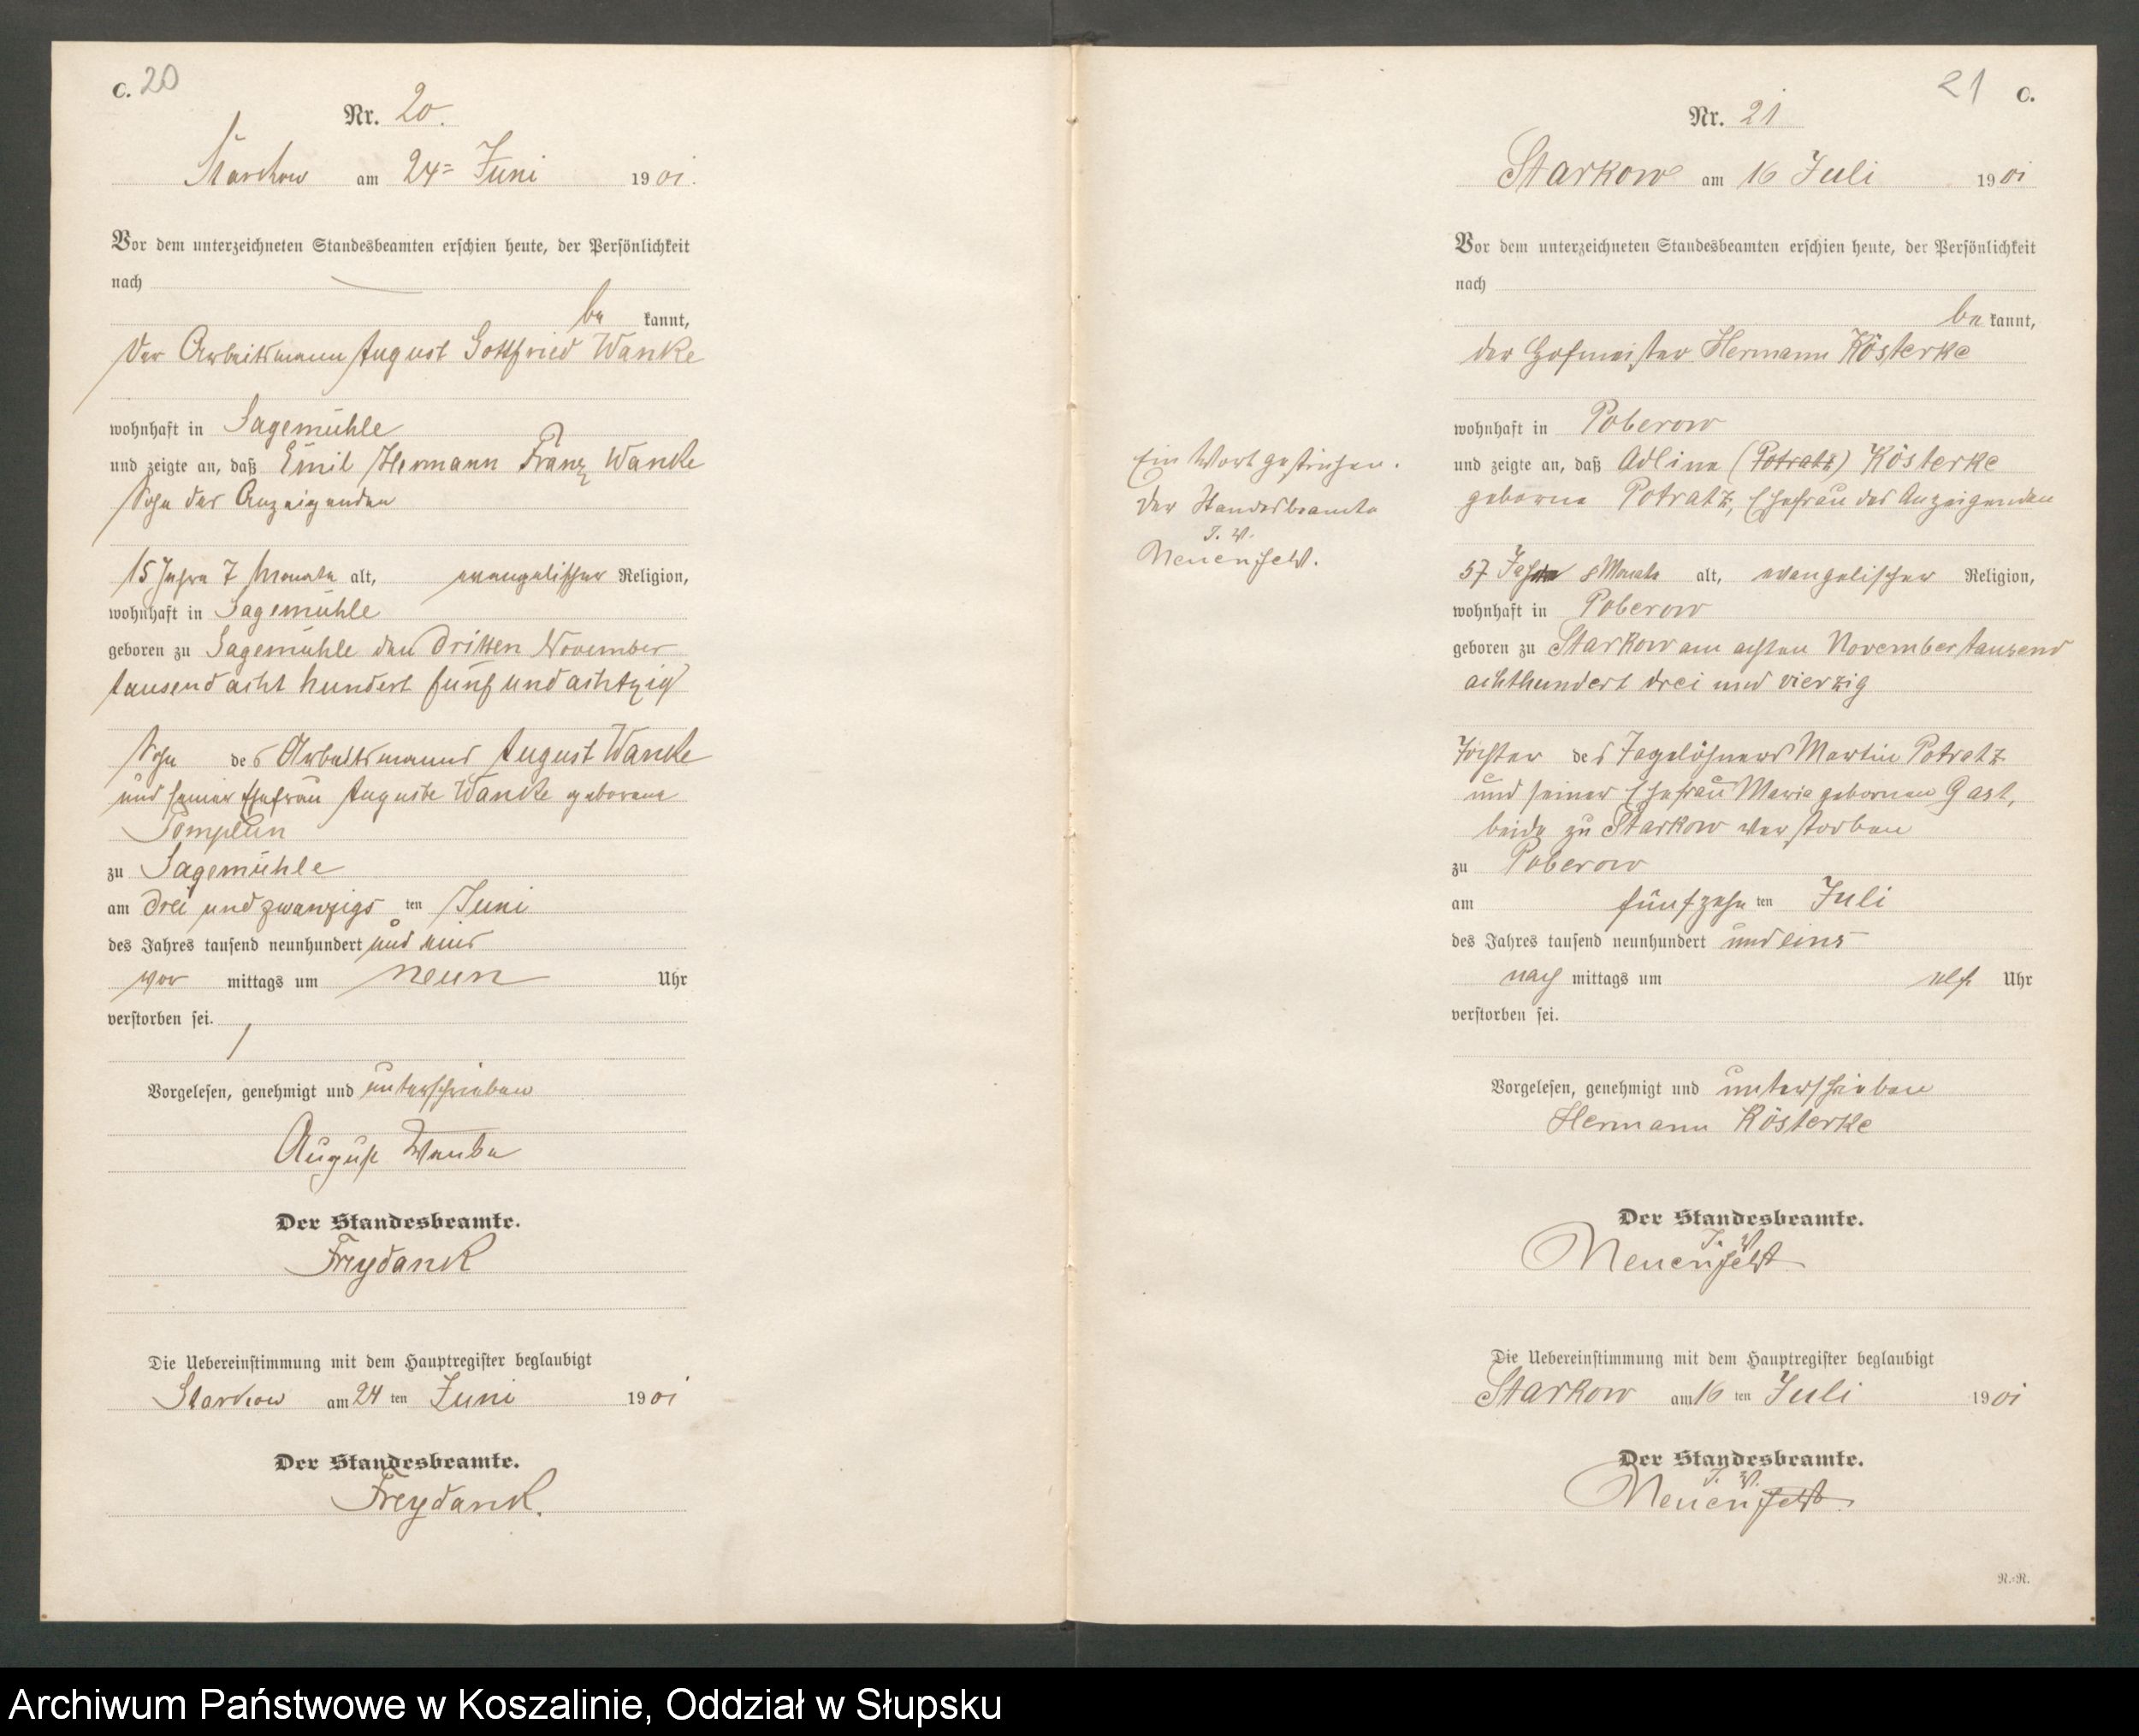 C. 20
Nr. 20.
Starkow am 24= Juni 1901.
Vor dem unterzeichneten Standesbeamten erschien heute, der Persönlichkeit
nach
be kannt,
der Arbeitsmann August Gottfried Wanke
wohnhaft in Sagemühle
und zeigte an, daß Emil Hermann Franz Wanke
Sohn des Anzeigenden
15 Jahre 7 Monate alt, evangelischer Religion,
wohnhaft in Sagemühle
geboren zu Sagemühle den dritten November
tausend acht hundert fünf und achtzig
Sohn des Arbeitsmanns August Wanke
und seiner Ehefrau Auguste Wanke geborene
Templin
zu Sagemühle
am drei und zwanzigs ten Juni
des Jahres tausend neunhundert und eins
vor mittags um neun Uhr
verstorben sei.
Vorgelesen, genehmigt und unterschrieben
August Wanke
Der Standesbeamte.
Freydank
Die Uebereinstimmung mit dem Hauptregister beglaubigt
Starkow am 24 ten Juni 1901
Der Standesbeamte.
Freydank.
21 C.
Nr. 21
Starkow am 16 Juli 1901
Vor dem unterzeichneten Standesbeamten erschien heute, der Persönlichkeit
nach
be kannt,
der Hofmeister Hermann Kösterke
wohnhaft in Poberow
und zeigte an, daß Adline (Potratz) Kösterke
geborne Potratz, Ehefrau des Anzeigenden
57 Jahre 8 Monate alt, evangelischer Religion,
wohnhaft in Poberow
geboren zu Starkow am achten November tausend
achthundert drei und vierzig
Tochter des Tagelöhners Martin Potratz
und seiner Ehefrau Marie gebornen Gast,
beide zu Starkow verstorben
zu Poberow
am fünfzehn ten Juli
des Jahres tausend neunhundert und eins
nach mittags um elf Uhr
verstorben sei.
Vorgelesen, genehmigt und unterschrieben
Hermann Kösterke
Der Standesbeamte.
J. V.
Neuenfeldt
Die Uebereinstimmung mit dem Hauptregister beglaubigt
Starkow am 16 ten Juli 1901
Der Standesbeamte.
J. V.
Neuenfeldt
R.-R.
Ein Wort gestrichen.
Der Standesbeamte
J. V.
Neuenfeldt.
Archiwum Państwowe w Koszalinie, Oddział w Słupsku